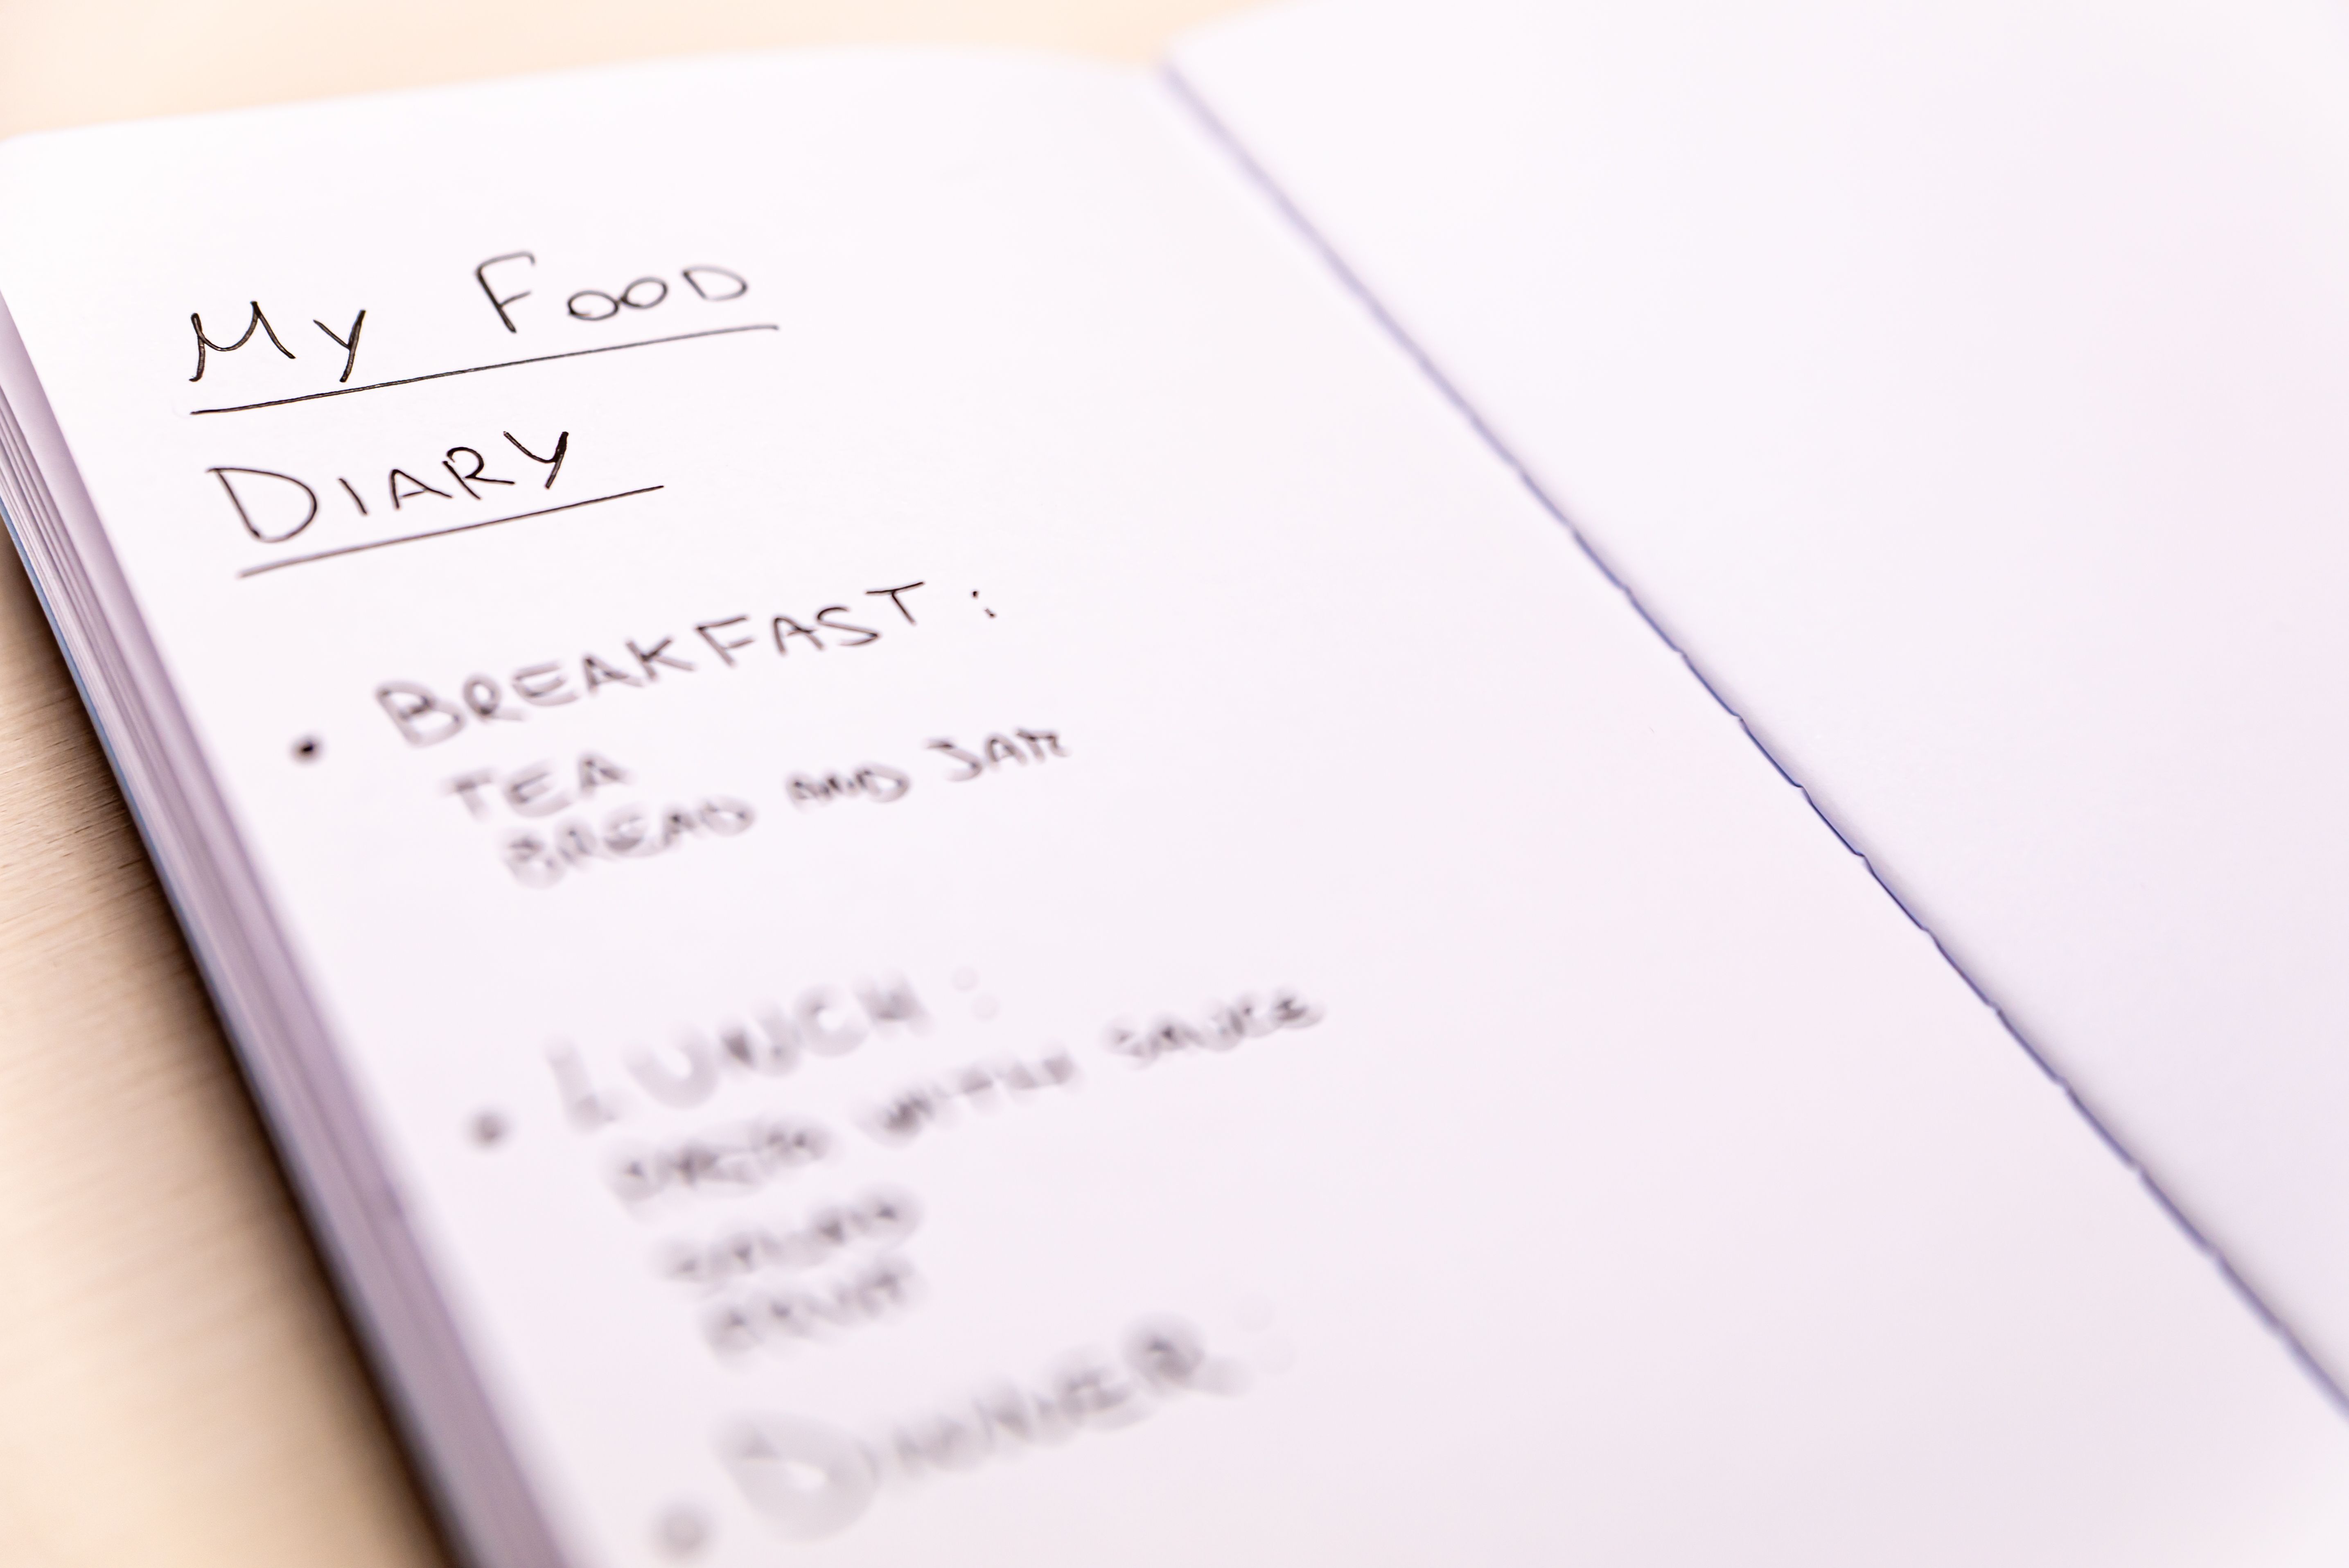 My Food
Diary
• Breakfast:
Tea
Bread and Jam
• Lunch:
with sauce
Fruit
• Dinner: